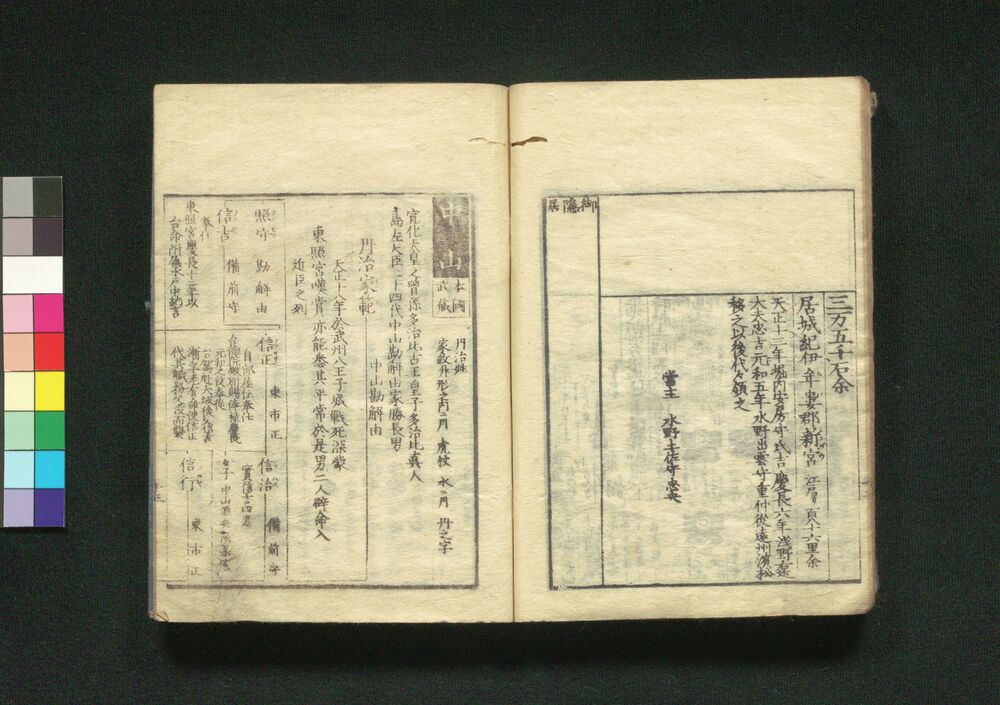 御隠居
三万五千石余
居城紀伊牟婁郡新宮 江戸ヨリ百六十六里余
天正十三年堀内安房守氏吉慶長六年浅野右近
大夫忠吉元和五年水野出雲守重仲從遠州濱松
移之以後代々領之
當主 水野土佐守忠央
中山
本國
武藏
丹治姓
家紋升形之内二月 虎杖 水ニ月 丹之字
宣化天皇之曾孫多治比古王皇子多治比真人
島左大臣二十四代中山勘解由家勝長男
中山勘解由
丹治家範
天正十八年於武州八王子城戰死深蒙
東照宮嘆賞亦能悉其平常於是男二人辟命入
近臣之列
照守 勘解由
信吉 備前守
東照宮慶長十二年以
台命附属水戸中納言
信正 東市正
自部屋住奉仕
信治 備前守
實信吉四男
女子
信行 東市正